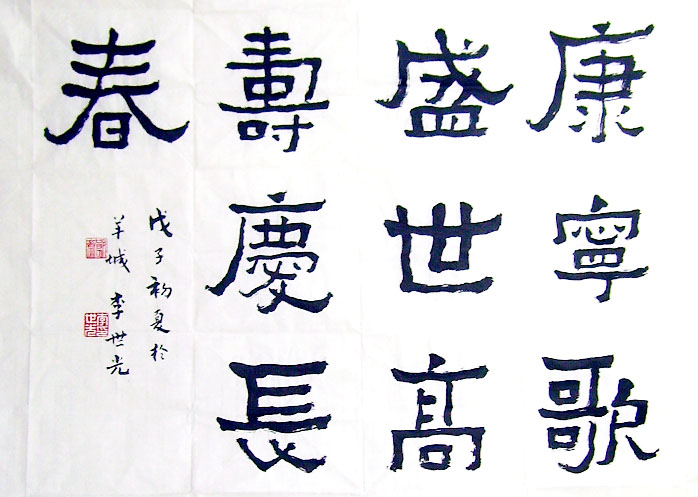 康寧歌
盛世高
壽慶長
春
戊子初夏於
羊城 李世光